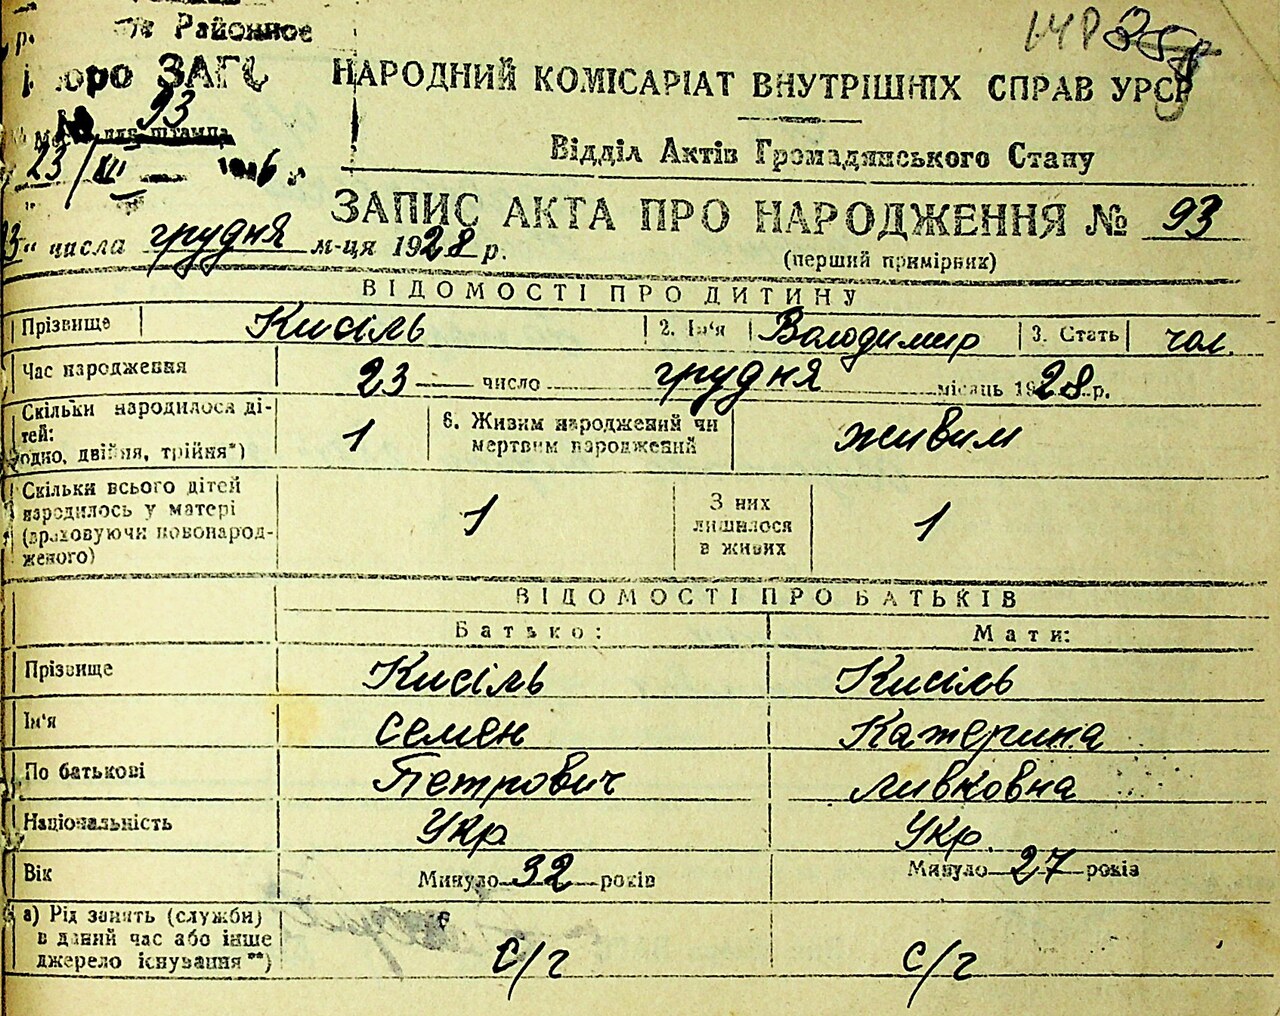 Районное
бюро ЗАГС
№ 93
для штампа
23/XII
148
НАРОДНИЙ КОМІСАРІАТ ВНУТРІШНІХ СПРАВ УРСР
Відділ Актів Громадянського Стану
ЗАПИС АКТА ПРО НАРОДЖЕННЯ № 93
(перший примірник)
числа грудня м-ця 1928 р.
ВІДОМОСТІ ПРО ДИТИНУ
Прізвище Кисіль 2. Ім'я Володимир 3. Стать чол.
Час народження 23 число грудня місяць 1928 р.
Скільки народилося ді-
тей:
одно, двійня, трійня*) 1 6. Живим народжений чи
мертвим народжений живим
Скільки всього дітей
народилось у матері
(враховуючи новонарод-
женого) 1 З них
лишилося
в живих 1
ВІДОМОСТІ ПРО БАТЬКІВ
Батько: Мати:
Прізвище Кисіль Кисіль
Ім'я Семен Катерина
По батькові Петрович Ливковна
Національність Укр. Укр.
Вік Минуло 32 років Минуло 27 років
а) Рід занять (служби)
в даний час або інше
джерело існування**) с/г с/г